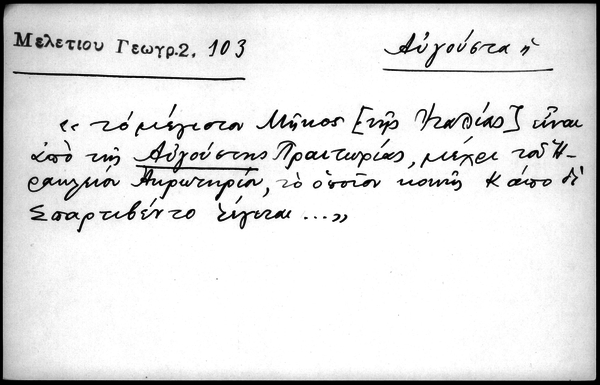 Μελετίου Γεωγρ. 2, 103
Αὐγούστα ἡ
« τὸ μέγιστον Μῆκος [τῆς Ἰταλίας] εἶναι
ἀπὸ τῆς Αὐγούστης Πραιτωρίας, μέχρι τοῦ Ἡ-
ρακλείου Ἀκρωτηρίου, τὸ ὁποῖον κοινῶς Κάπο δὶ
Σπαρτιβέντο λέγεται ... »